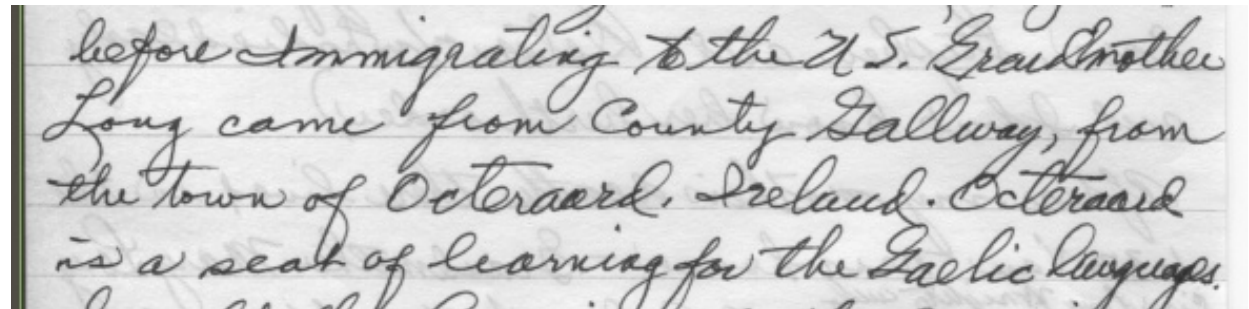 before Immigrating to the U S. Grandmother
Long came from County Gallway, from
the town of Octeraord. Ireland. Octeraord
is a seat of learning for the Gaelic languages.